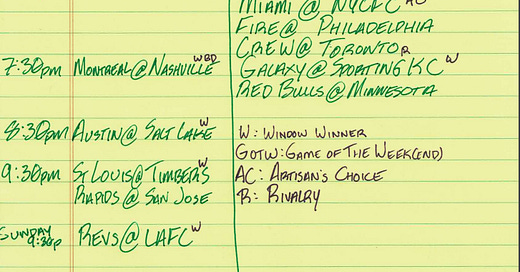 MIAMI @ NYCFC AC
FIRE @ PHILADELPHIA
CREW @ TORONTO R
7:30pm MONTREAL @ NASHVILLE WBD
GALAXY @ SPORTING KC W
RED BULLS @ MINNESOTA
8:30pm AUSTIN @ SALT LAKE W
W: WINDOW WINNER
GOTW: GAME OF THE WEEK(END)
9:30pm ST LOUIS @ TIMBERS W
AC: ARTISAN'S CHOICE
RAPIDS @ SAN JOSE
R: RIVALRY
SUNDAY
9:30p REVS @ LAFC W